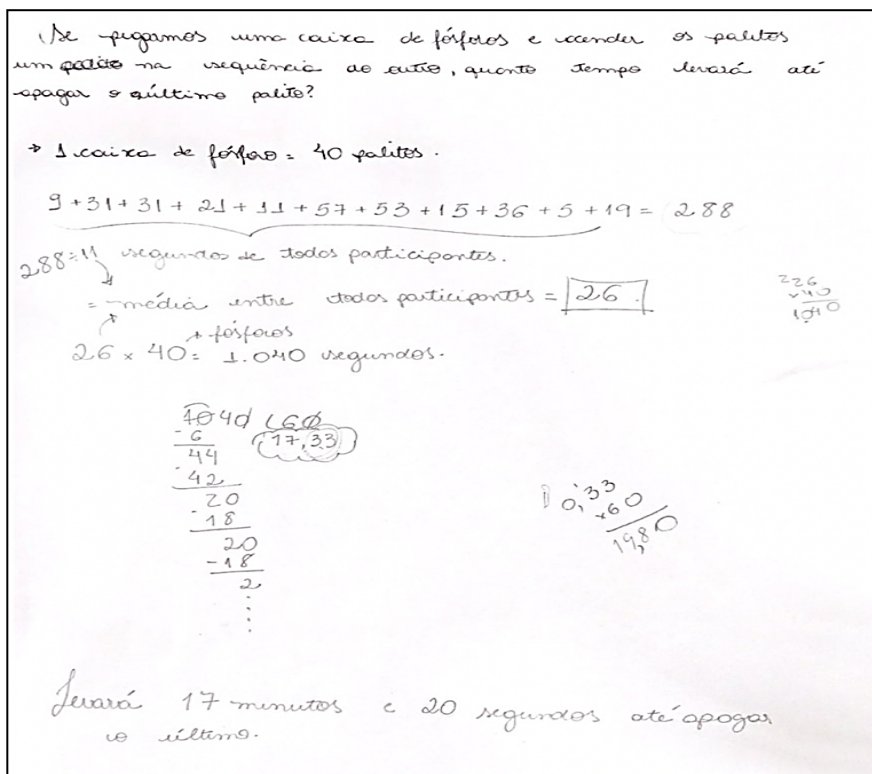 Se pegarmos uma caixa de fósforos e acender os palitos
um palito na sequência do outro, quanto tempo levará até
apagar o último palito?
→ 1 caixa de fósforo = 40 palitos.
9+31+31+21+11+57+53+15+36+5+19= 288
288÷11 segundos de todos participantes.
= média entre todos participantes = 26.
→ fósforos
26 × 40= 1.040 segundos.
226
×40
1040
1040 60
-6 17,33
44
-42
20
-18
20
-18
2
0,33
×60
19,80
Levará 17 minutos e 20 segundos até apagar
o último.